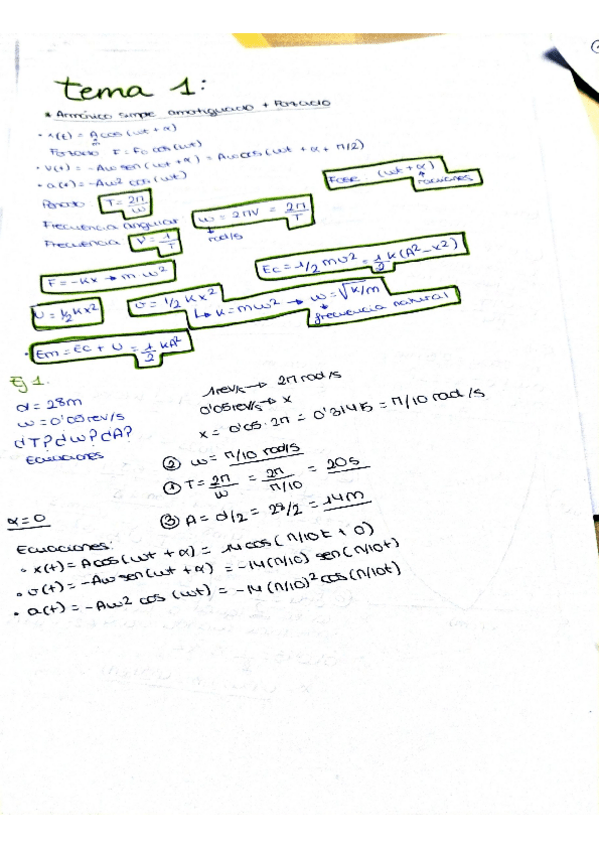 tema 1:
* Armónico simple amortiguado + Forzado
· x(t) = A cos (wt + α)
m
Forzado F = F₀ cos (wt)
· v(t) = -Aw sen (wt + α) = Aw cos (wt + α + π/2)
· a(t) = -Aw² cos (wt)
Fase: (wt + α)
radianes
Periodo: T = 2π/w
Frecuencia angular w = 2πν = 2π/T
rad/s
Frecuencia ν = 1/T
F = -kx → m w²
Ec = 1/2 mv² = 1/2 k (A² - x²)
U = 1/2 kx²
U = 1/2 kx²
↳ k = mw² → w = √k/m
frecuencia natural
· Em = Ec + U = 1/2 kA²
Ej 1.
d = 28m
w = 0'05 rev/s
¿T? ¿w? ¿A?
Ecuaciones
1 rev/s → 2π rad/s
0'05 rev/s → x
x = 0'05 · 2π = 0'3145 = π/10 rad/s
② w = π/10 rad/s
① T = 2π/w = 2π/π/10 = 20s
③ A = d/2 = 28/2 = 14m
α = 0
Ecuaciones:
· x(t) = A cos (wt + α) = 14 cos (π/10t + 0)
· v(t) = -Aw sen (wt + α) = -14 (π/10) sen (π/10t)
· a(t) = -Aw² cos (wt) = -14 (π/10)² cos (π/10t)